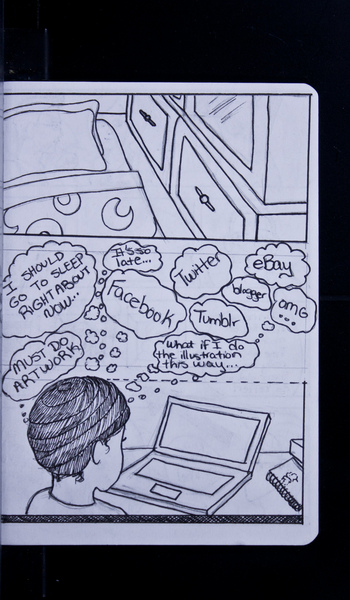 I SHOULD
GO TO SLEEP
RIGHT ABOUT
NOW...
It's so
late...
Twitter
eBay
Facebook
blogger
omg
...
Tumblr
What if I do
the illustration
this way...
MUST DO
ARTWORK